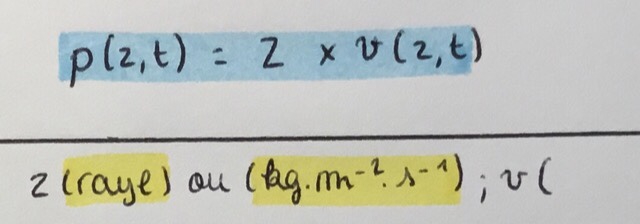 p(z,t) = Z × v(z,t)
z (raye) ou (kg.m⁻².s⁻¹) ; v(